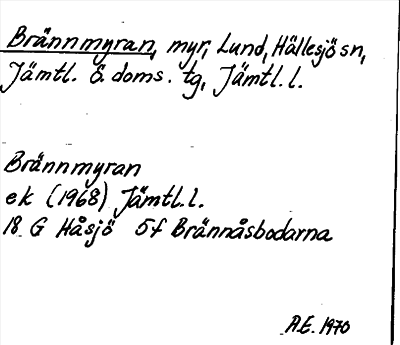 Brännmyran, myr, Lund, Hällesjö sn,
Jämtl. ö. doms. tg, Jämtl. l.
Brännmyran
ek (1968) Jämtl. l.
18 G Håsjö 5f Brännåsbodarna
A.E. 1970